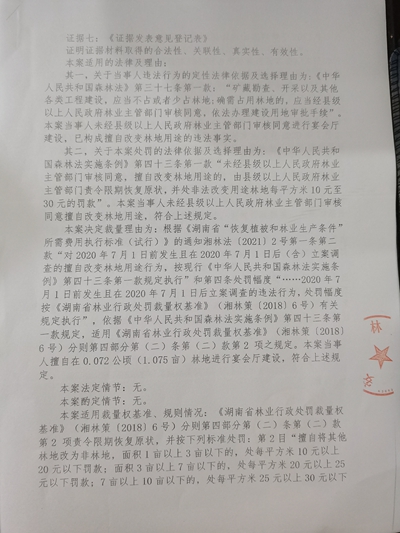 证据七：《证据发表意见登记表》
证明证据材料取得的合法性、关联性、真实性、有效性。
本案适用的法律及理由：
其一，关于当事人违法行为的定性法律依据及选择理由为：《中华
人民共和国森林法》第三十七条第一款：“矿藏勘查、开采以及其他
各类工程建设，应当不占或者少占林地;确需占用林地的，应当经县级
以上人民政府林业主管部门审核同意，依法办理建设用地审批手续”，
本案当事人未经县级以上人民政府林业主管部门审核同意进行宴会厅
建设，已构成擅自改变林地用途的违法事实。
其二，关于本案处罚的法律依据及选择理由为：《中华人民共和
国森林法实施条例》第四十三条第一款“未经县级以上人民政府林业
主管部门审核同意，擅自改变林地用途的，由县级以上人民政府林业
主管部门责令限期恢复原状，并处非法改变用途林地每平方米10元至
30元的罚款”。本案当事人未经县级以上人民政府林业主管部门审核
同意擅自改变林地用途，符合上述规定。
本案决定裁量理由为：根据《湖南省“恢复植被和林业生产条件”
所需费用执行标准（试行）》的通知湘林法〔2021〕2号第一条第二
款“对2020年7月1日前发生且在2020年7月1日后(含)立案调
查的擅自改变林地用途行为，按现行《中华人民共和国森林法实施条
例》第四十三条第一款规定执行”和第四条处罚幅度“……2020年7
月1日前发生且在2020年7月1日后立案调查的违法行为，处罚幅度
按《湖南省林业行政处罚裁量权基准》(湘林策〔2018〕6号)有关
规定执行”，依据《中华人民共和国森林法实施条例》第四十三条第
一款规定，适用《湖南省林业行政处罚裁量权基准》（湘林策〔2018〕
6号）分则第四部分第（二）条第（二）款第2项之规定。本案当事
人擅自在0.072公顷（1.075亩）林地进行宴会厅建设，符合上述规
定。
本案法定情节：无。
本案酌定情节：无。
本案适用裁量权基准、规则情况：《湖南省林业行政处罚裁量权
基准》（湘林策〔2018〕6号）分则第四部分第（二）条第（二）款
第2项责令限期恢复原状，并按下列标准处罚：第2目“擅自将其他
林地改为非林地，面积1亩以上3亩以下的，处每平方米10元以上
20元以下罚款；面积3亩以上7亩以下的，处每平方米20元以上25
元以下罚款；7亩以上10亩以下的，处每平方米25元以上30元以下
林